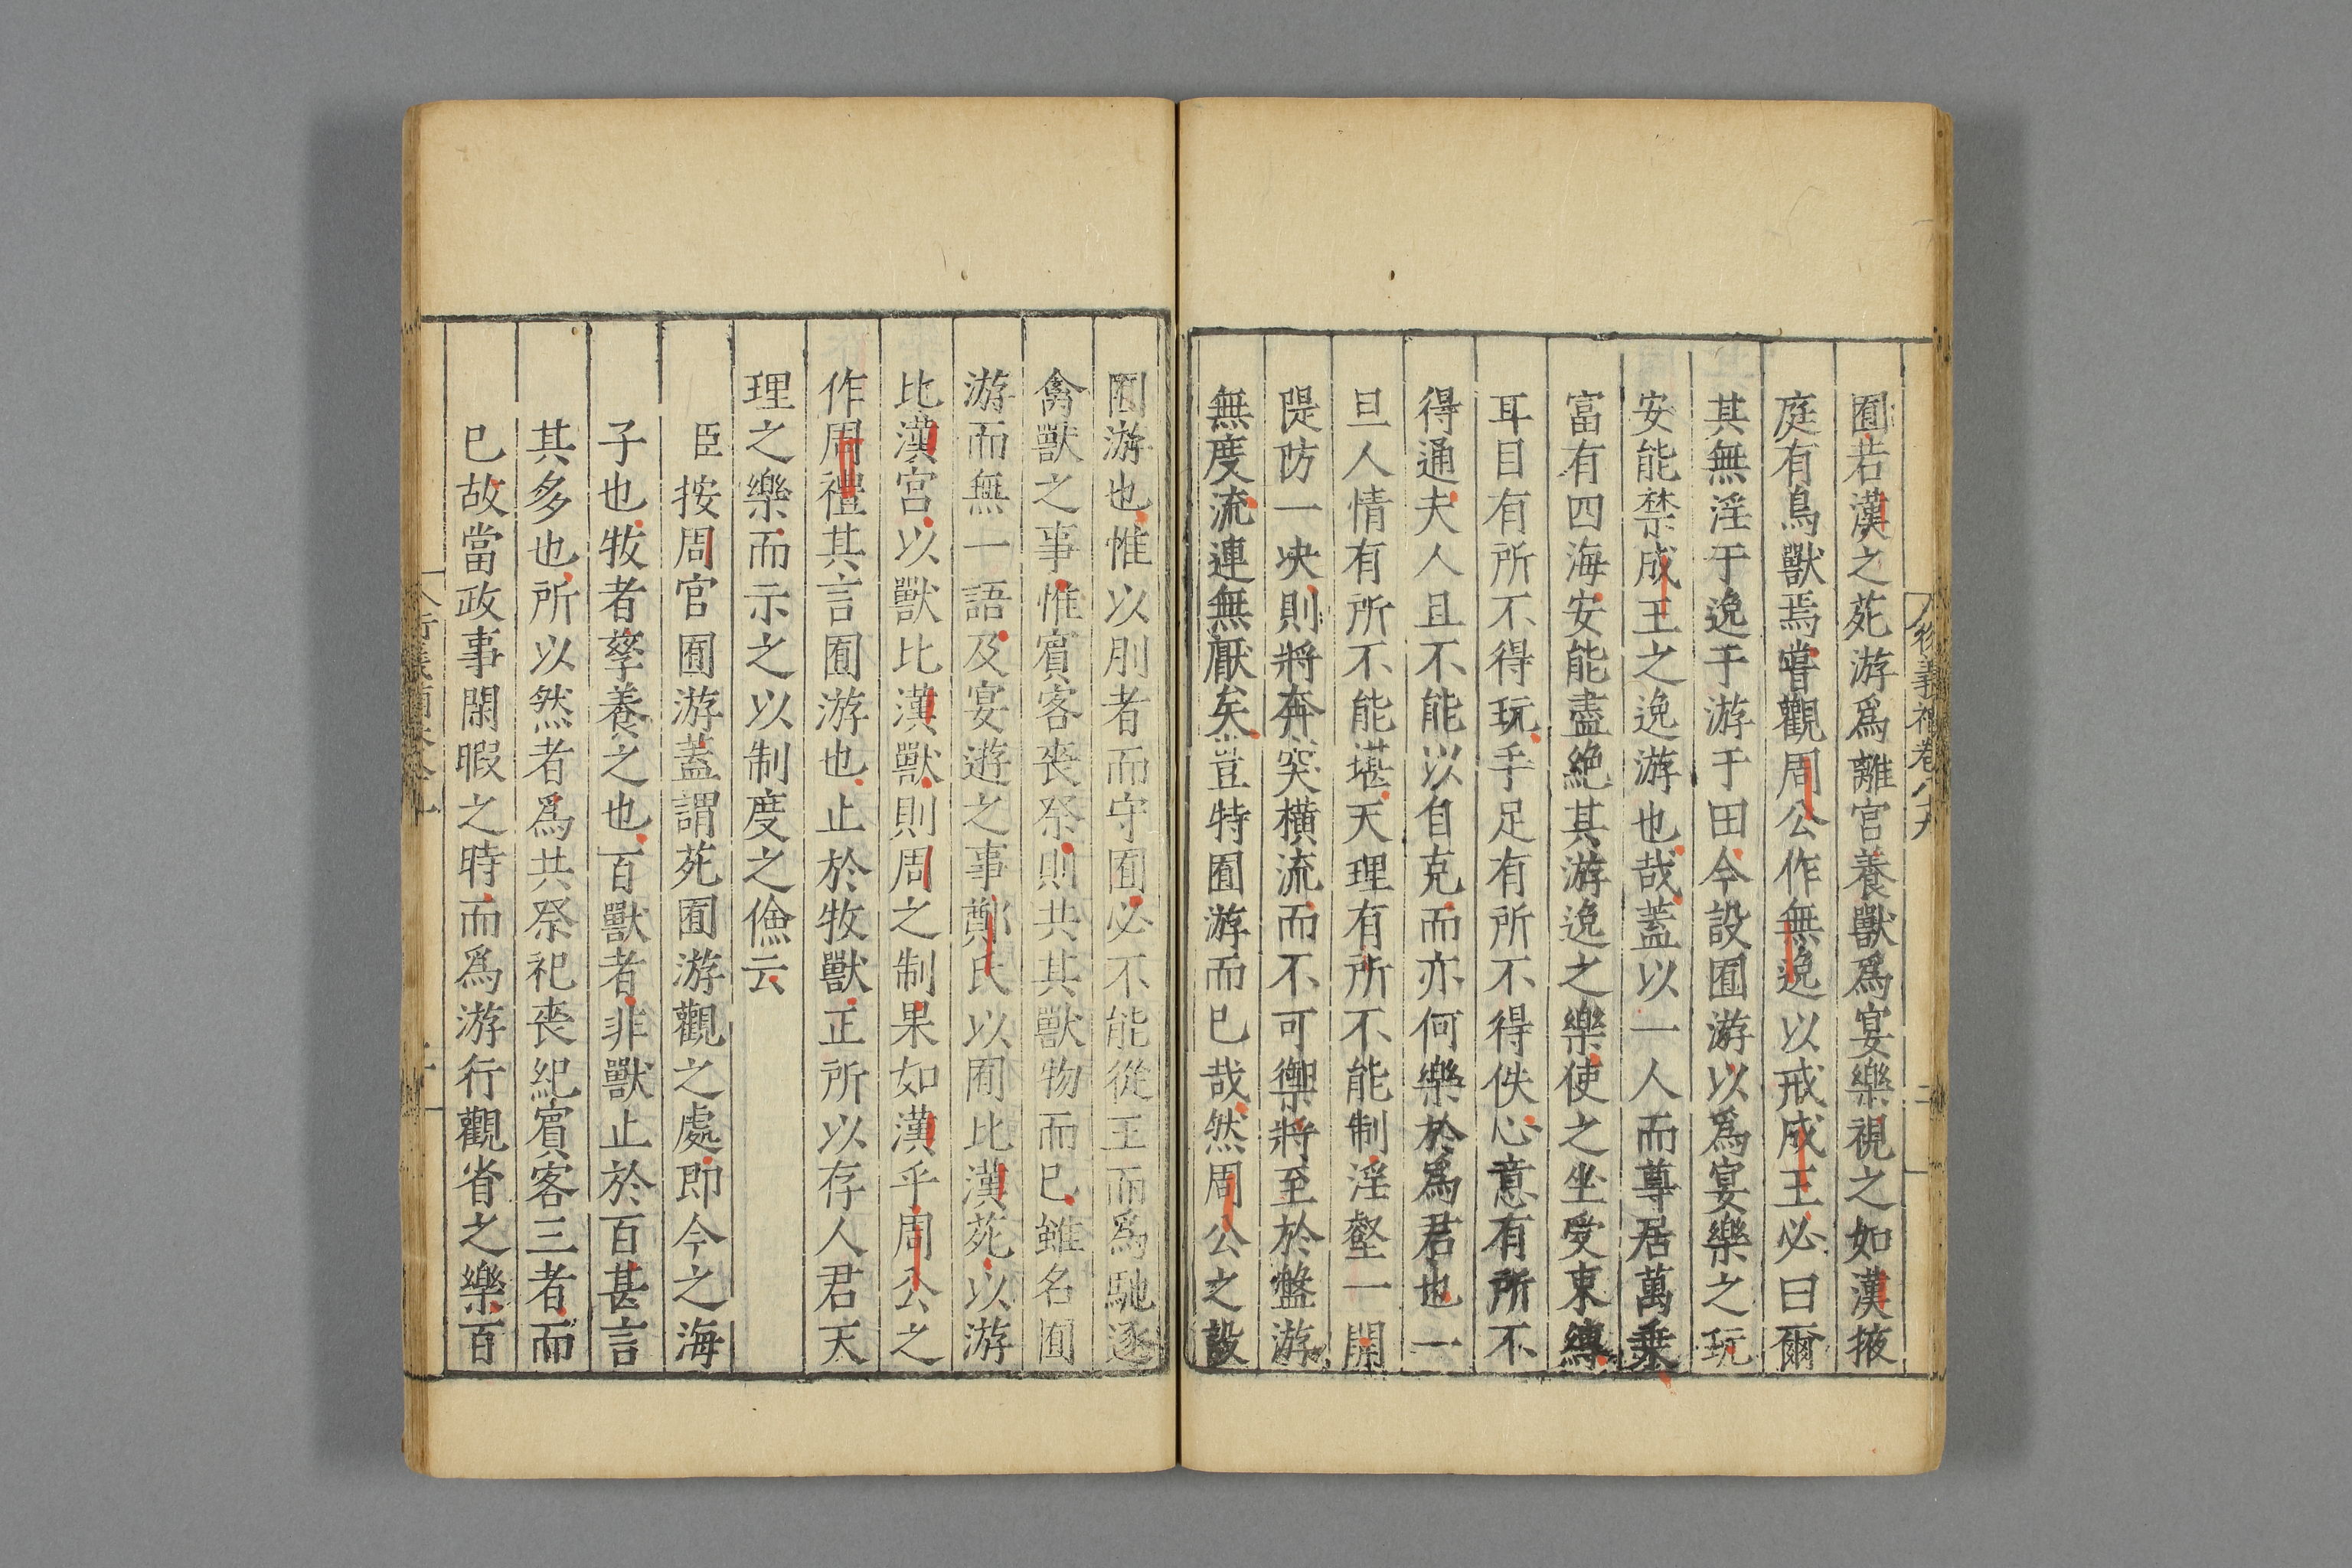 囿若漢之苑游爲離宮養獸爲宴樂視之如漢掖
庭有鳥獸焉嘗觀周公作無逸以戒成王必曰爾
其無淫于逸于游于田今設囿游以爲宴樂之玩
安能禁成王之逸游也哉蓋以一人而尊居萬乗
富有四海安能盡絶其游逸之樂使之坐受束縛
耳目有所不得玩手足有所不得佚心意有所不
得通夫人且不能以自克而亦何樂於爲君也一
旦人情有所不能堪天理有所不能制淫壑一開
隄防一决則將奔突橫流而不可禦將至於盤游
無度流連無厭矣豈特囿游而已哉然周公之設
囿游也惟以刖者而守囿必不能從王而爲馳逐
禽獸之事惟賓客喪祭則共其獸物而已雖名囿
游而無一語及宴遊之事鄭氏以囿比漢苑以游
比漢宮以獸比漢獸則周之制果如漢乎周公之
作周禮其言囿游也止於牧獸正所以存人君天
理之樂而示之以制度之儉云
臣按周官囿游蓋謂苑囿游觀之處即今之海
子也牧者孳養之也百獸者非獸止於百甚言
其多也所以然者爲共祭祀喪紀賓客三者而
已故當政事閑暇之時而爲游行觀省之樂百